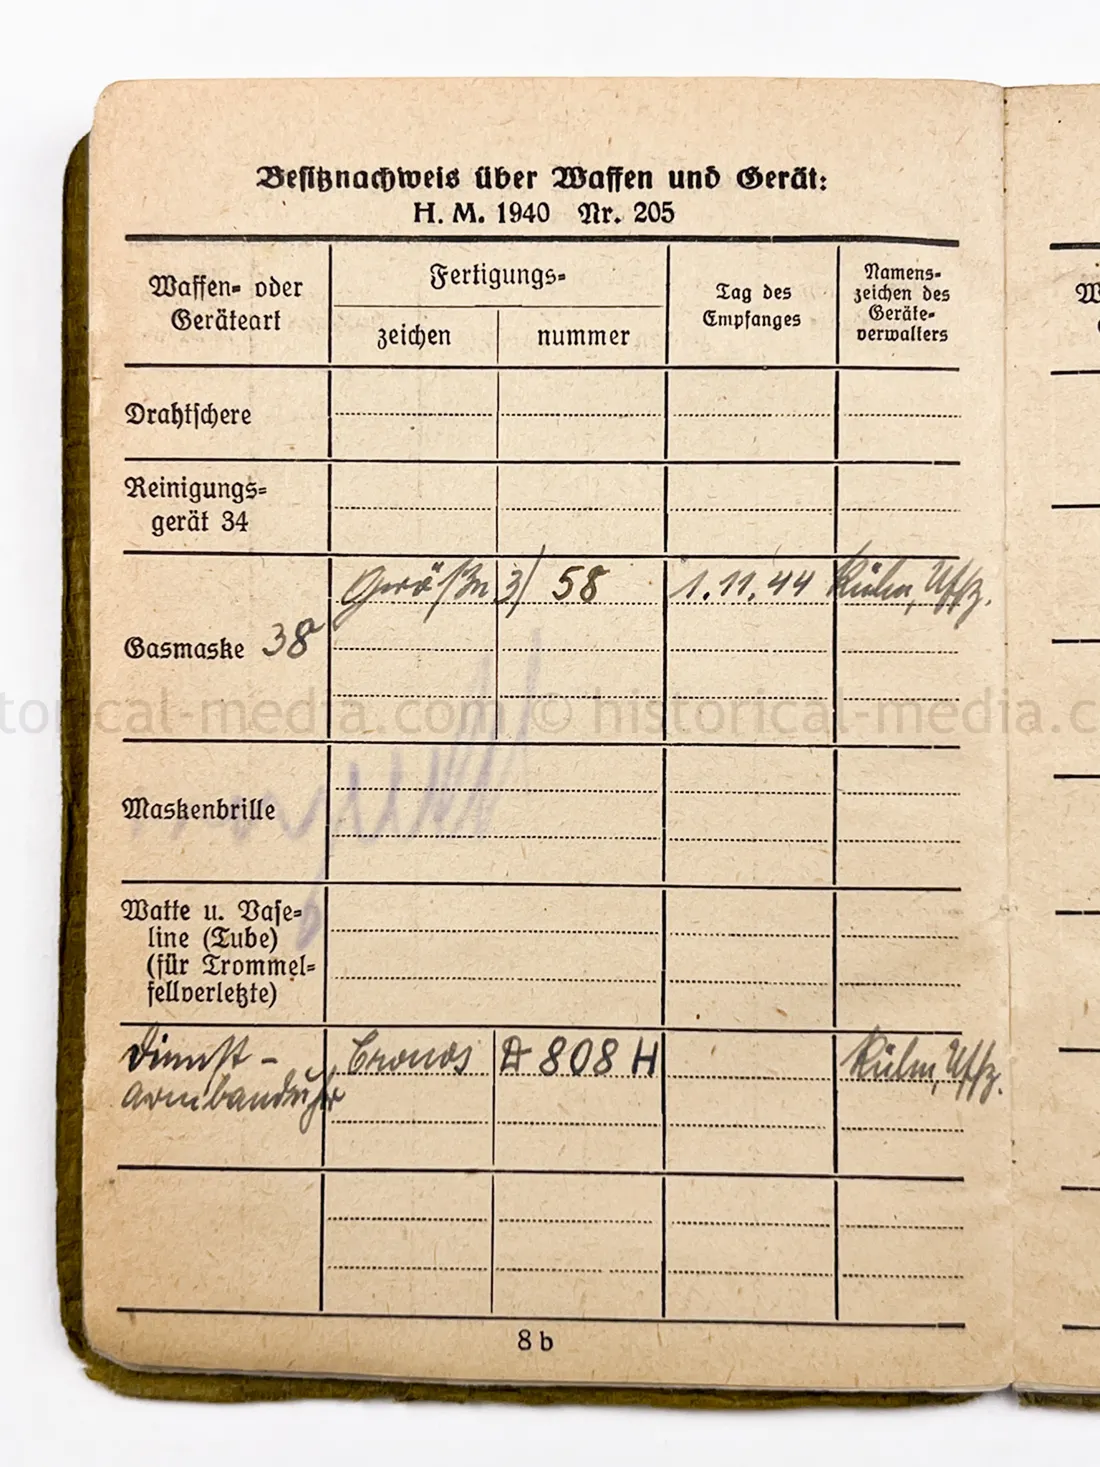 Besitznachweis über Waffen und Gerät:
H. M. 1940 Nr. 205
Waffen- oder
Geräteart
Fertigungs-
zeichen
nummer
Tag des
Empfanges
Namens-
zeichen des
Geräte-
verwalters
Drahtschere
Reinigungs-
gerät 34
Gasmaske 38
Größe 3/ 58 1.11.44 Kühn, Uffz.
Maskenbrille
Watte u. Vase-
line (Tube)
(für Trommel-
fellverletzte)
Dienst-
armbanduhr
Cronos D 808 H Kühn, Uffz.
8 b
historical-media.com © historical-media.c